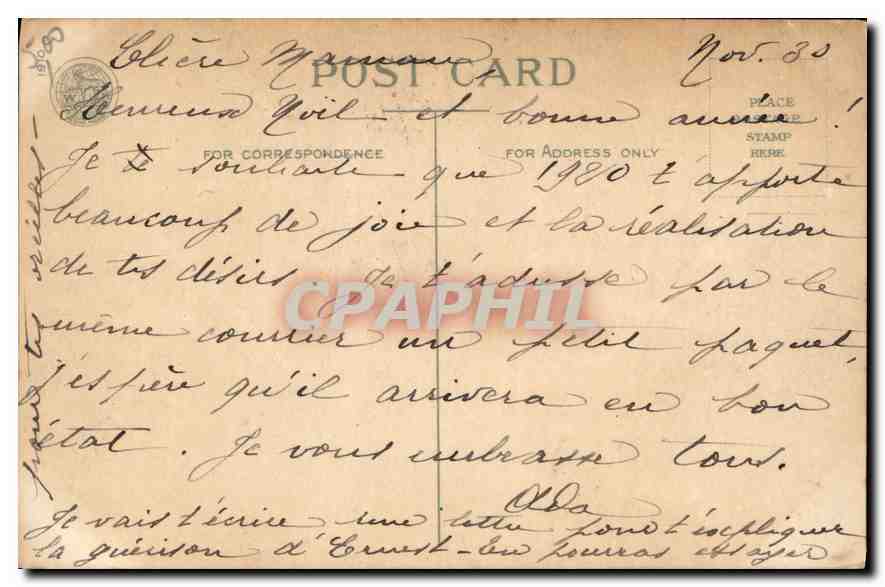 Chère Maman, Nov. 30
POST CARD
Heureux Noël - et bonne année!
PLACE
POSTAGE
STAMP
HERE
FOR CORRESPONDENCE
FOR ADDRESS ONLY
Je te souhaite que 1920 t'apporte
beaucoup de joie et la réalisation
de tes désirs. Je t'adresse par le
même courrier un petit paquet,
j'espère qu'il arrivera en bon
état. Je vous embrasse tous.
Ada
Je vais t'écrire une lettre pour t'expliquer
la guérison d'Ernest - tu pourras essayer
pour tes oreilles -
CPAPHIL